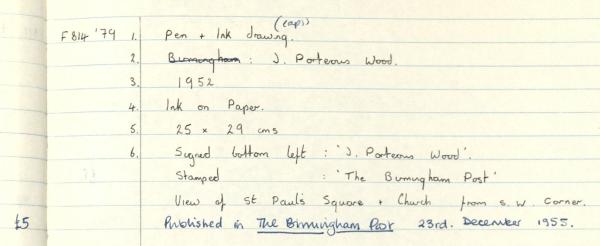 (caps)
F814 '79 1. Pen + Ink drawing.
2. Birmingham : J. Porteous Wood.
3. 1952
4. Ink on Paper.
5. 25 x 29 cms
6. Signed bottom left : 'J. Porteous Wood'.
Stamped : 'The Birmingham Post'
View of St Paul's Square + Church from S.W. Corner.
£5 Published in The Birmingham Post 23rd. December 1955.